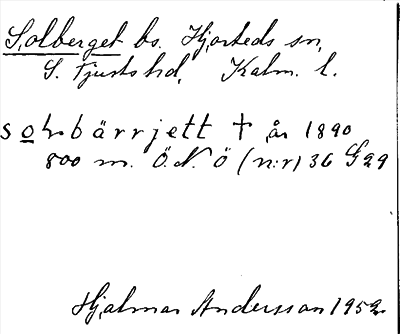 Solberget bs. Hjorteds sn,
S. Tjusts hd, Kalm. l.
solbärrjett † år 1890
800 m. Ö.N.Ö (n:r) 36 G 29
Hjalmar Andersson 1952